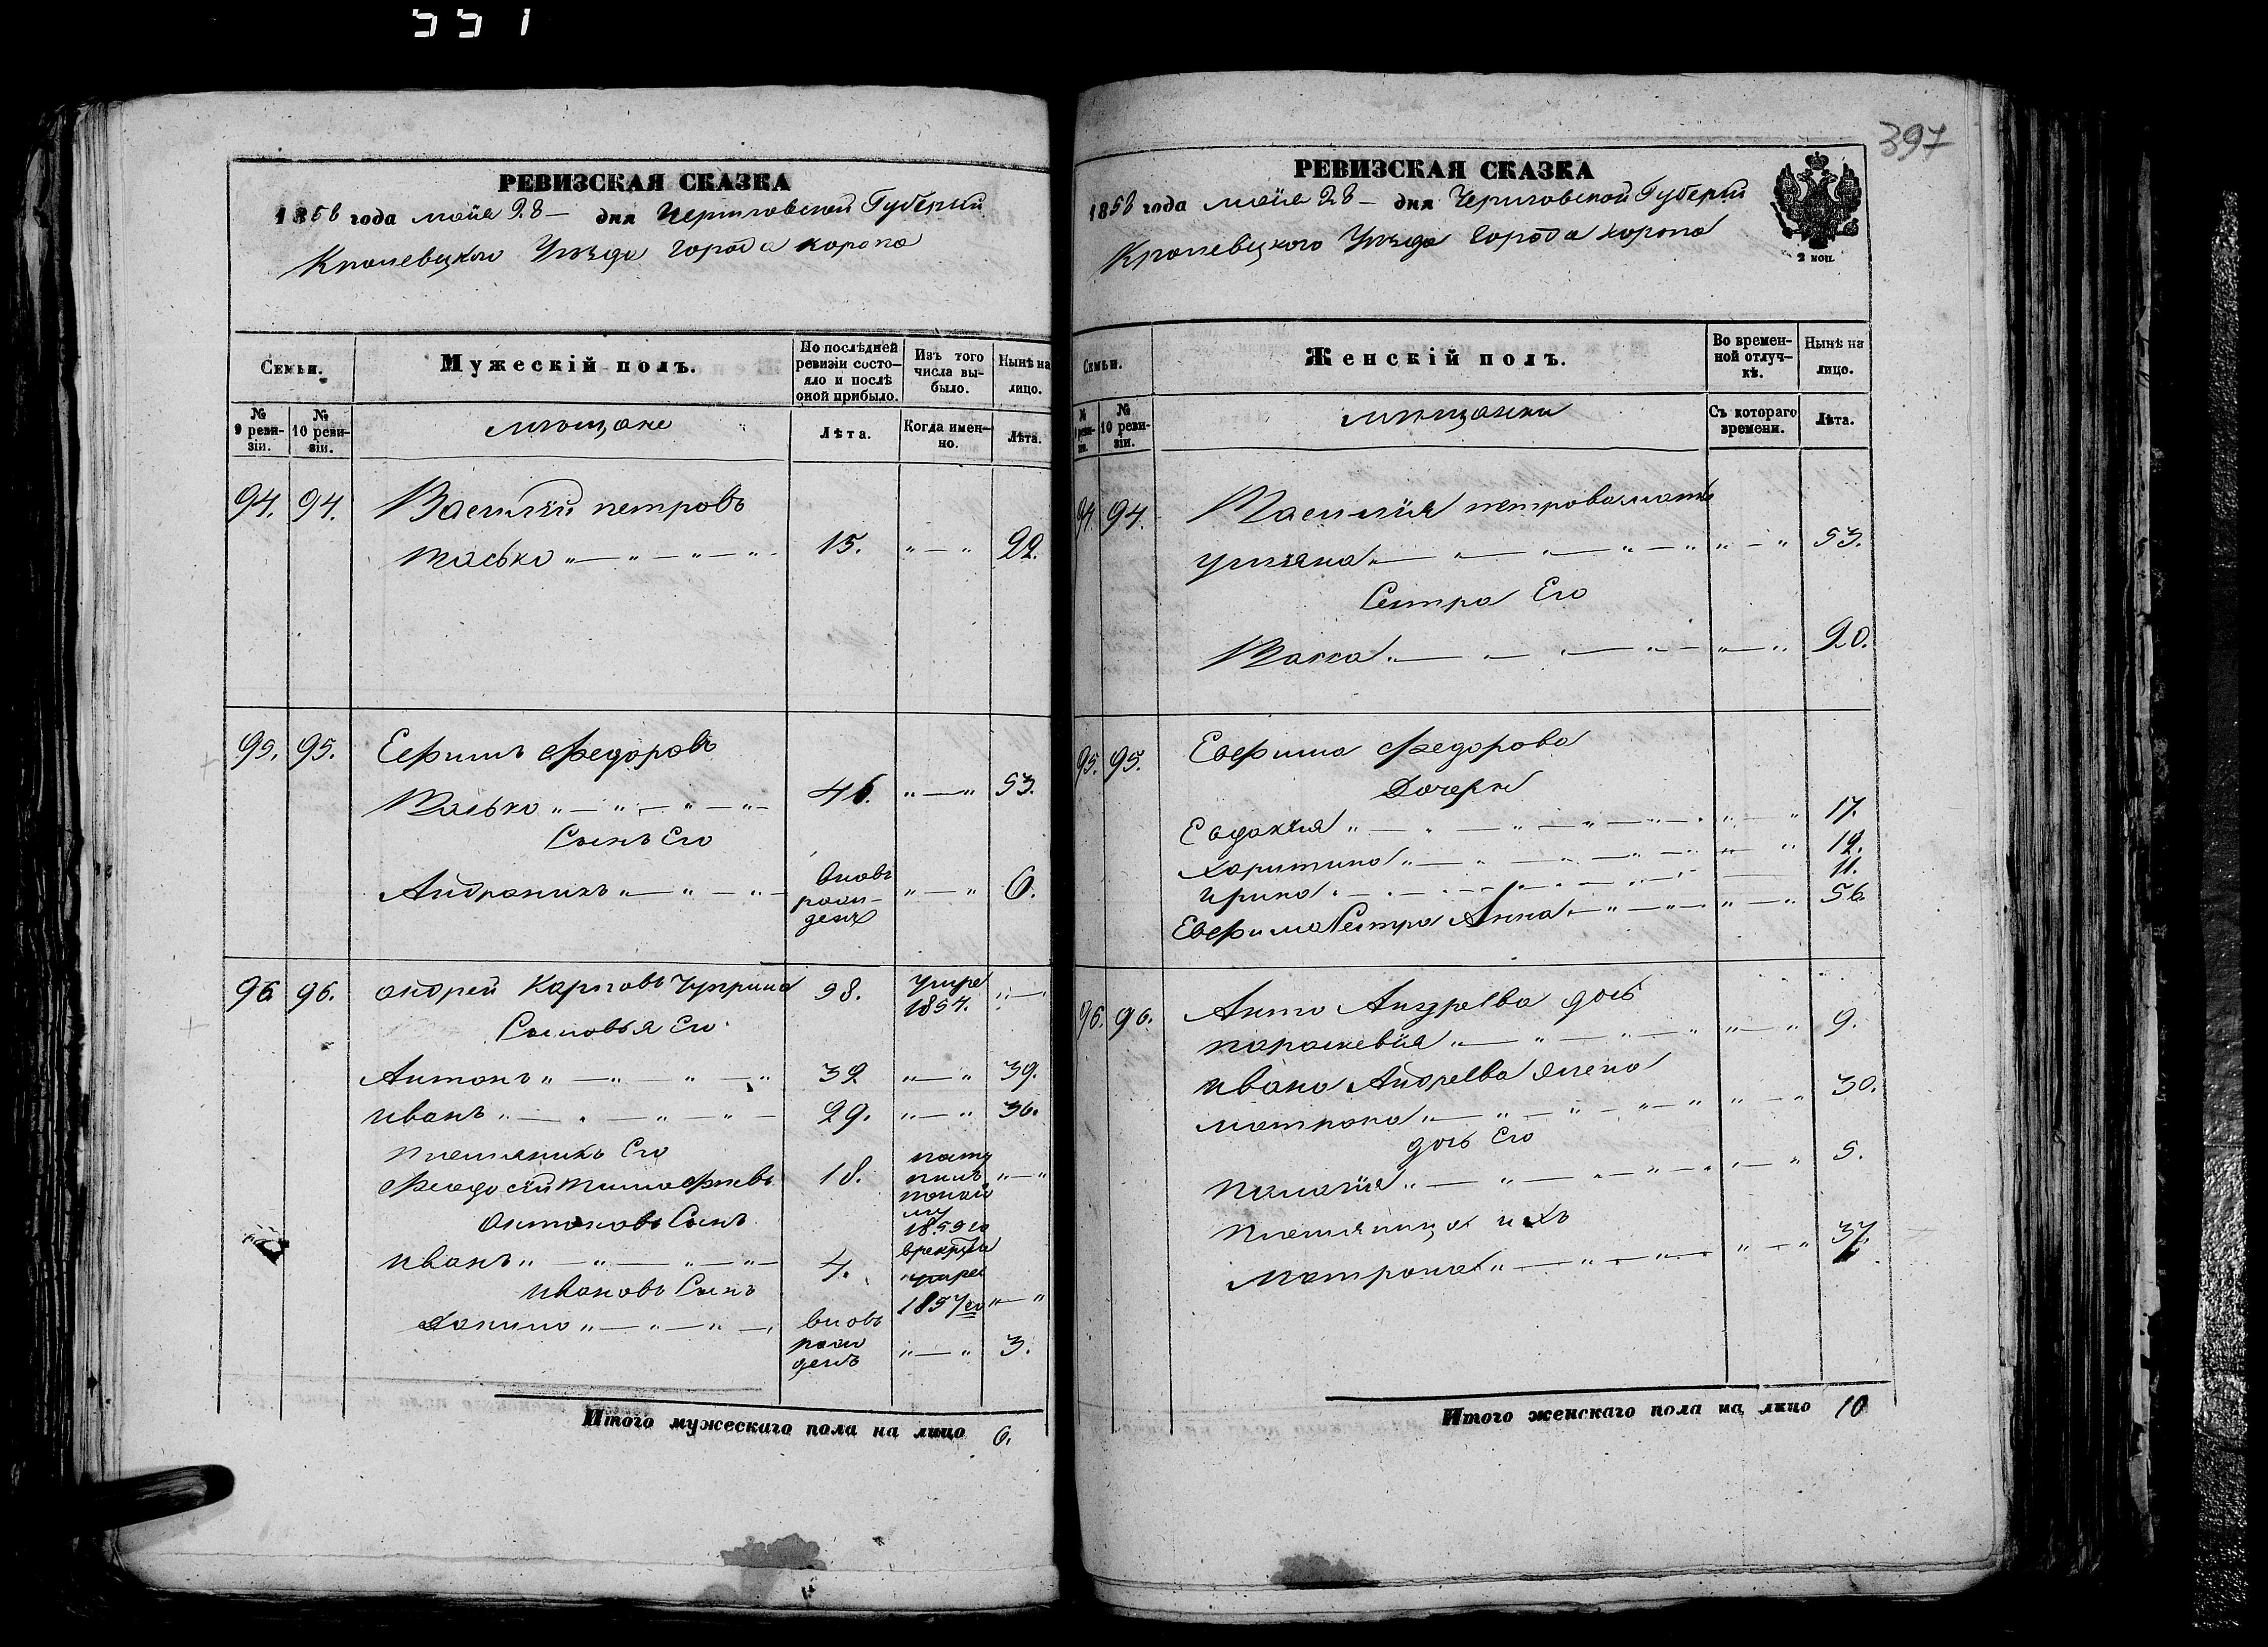 551
РЕВИЗСКАЯ СКАЗКА
1858 года маія 28 — дня Черниговской Губерніи
Кролевецкого Уѣзда города коропа
Семьи.
Мужескій полъ.
По послѣдней ревизіи состояло и послѣ оной прибыло.
Изъ того числа выбыло.
Нынѣ на лицо.
№ 9 ревизіи.
№ 10 ревизіи.
мѣщане
Лѣта.
Когда именно.
Лѣта.
94. 94. Василій петровъ
Масько „ — „ — „ — „ 15. „ — „ 22.
95. 95. Ефимъ Федоровъ
Масько „ — „ — „ — „ 46. „ — „ 53.
Сынъ Его
Андроникъ „ — „ — „ вновь рожденъ „ — „ 6.
96 96. андрей Карповъ Чуприна 98. умре 1854. „ —
Сыновья Его
Антонъ „ — „ — „ — „ 32 „ — „ 39.
иванъ „ — „ — „ — „ 29. „ — „ 36.
племяникъ Его
Феодосій Тимофѣевъ 18. 1859 го „ — „
антоновъ Сынъ
иванъ „ — „ — „ — „ 4. умре 1857 го „ — „
ивановъ Сынъ
данило „ — „ — „ — вновь рожденъ „ — „ 3.
Итого мужескаго пола на лицо 6.
397
РЕВИЗСКАЯ СКАЗКА
1858 года маія 28 — дня Черниговской Губерніи
Кролевецкого Уѣзда города коропа
2 коп.
Семьи.
Женскій полъ.
Во временной отлучкѣ.
Нынѣ на лицо.
№ 9 ревизіи.
№ 10 ревизіи.
мѣщанки
Съ котораго времени.
Лѣта.
94. 94. Василія петрова мать
уліяна „ — „ — „ — „ „ — „ 53.
Сестра Его
„ — „ — „ — „ „ — „ 20.
95. 95. Евфима Федорова
Дочери
Евдокія „ — „ — „ — „ „ — „ 17.
Харитина „ — „ — „ — „ „ — „ 12.
ирина „ — „ — „ — „ — 11.
Евфима Сестра Анна „ — „ — „ „ — „ 56.
96. 96. Антона Андреева дочь
параскевія „ — „ — „ — „ „ — „ 9.
ивана Андреева жена
матрона „ — „ — „ — „ „ — „ 30.
дочь Его
пелагія „ — „ — „ — „ „ — „ 5.
племяница ихъ
Матрона „ — „ — „ — „ „ — „ 37.
Итого женскаго пола на лицо 10